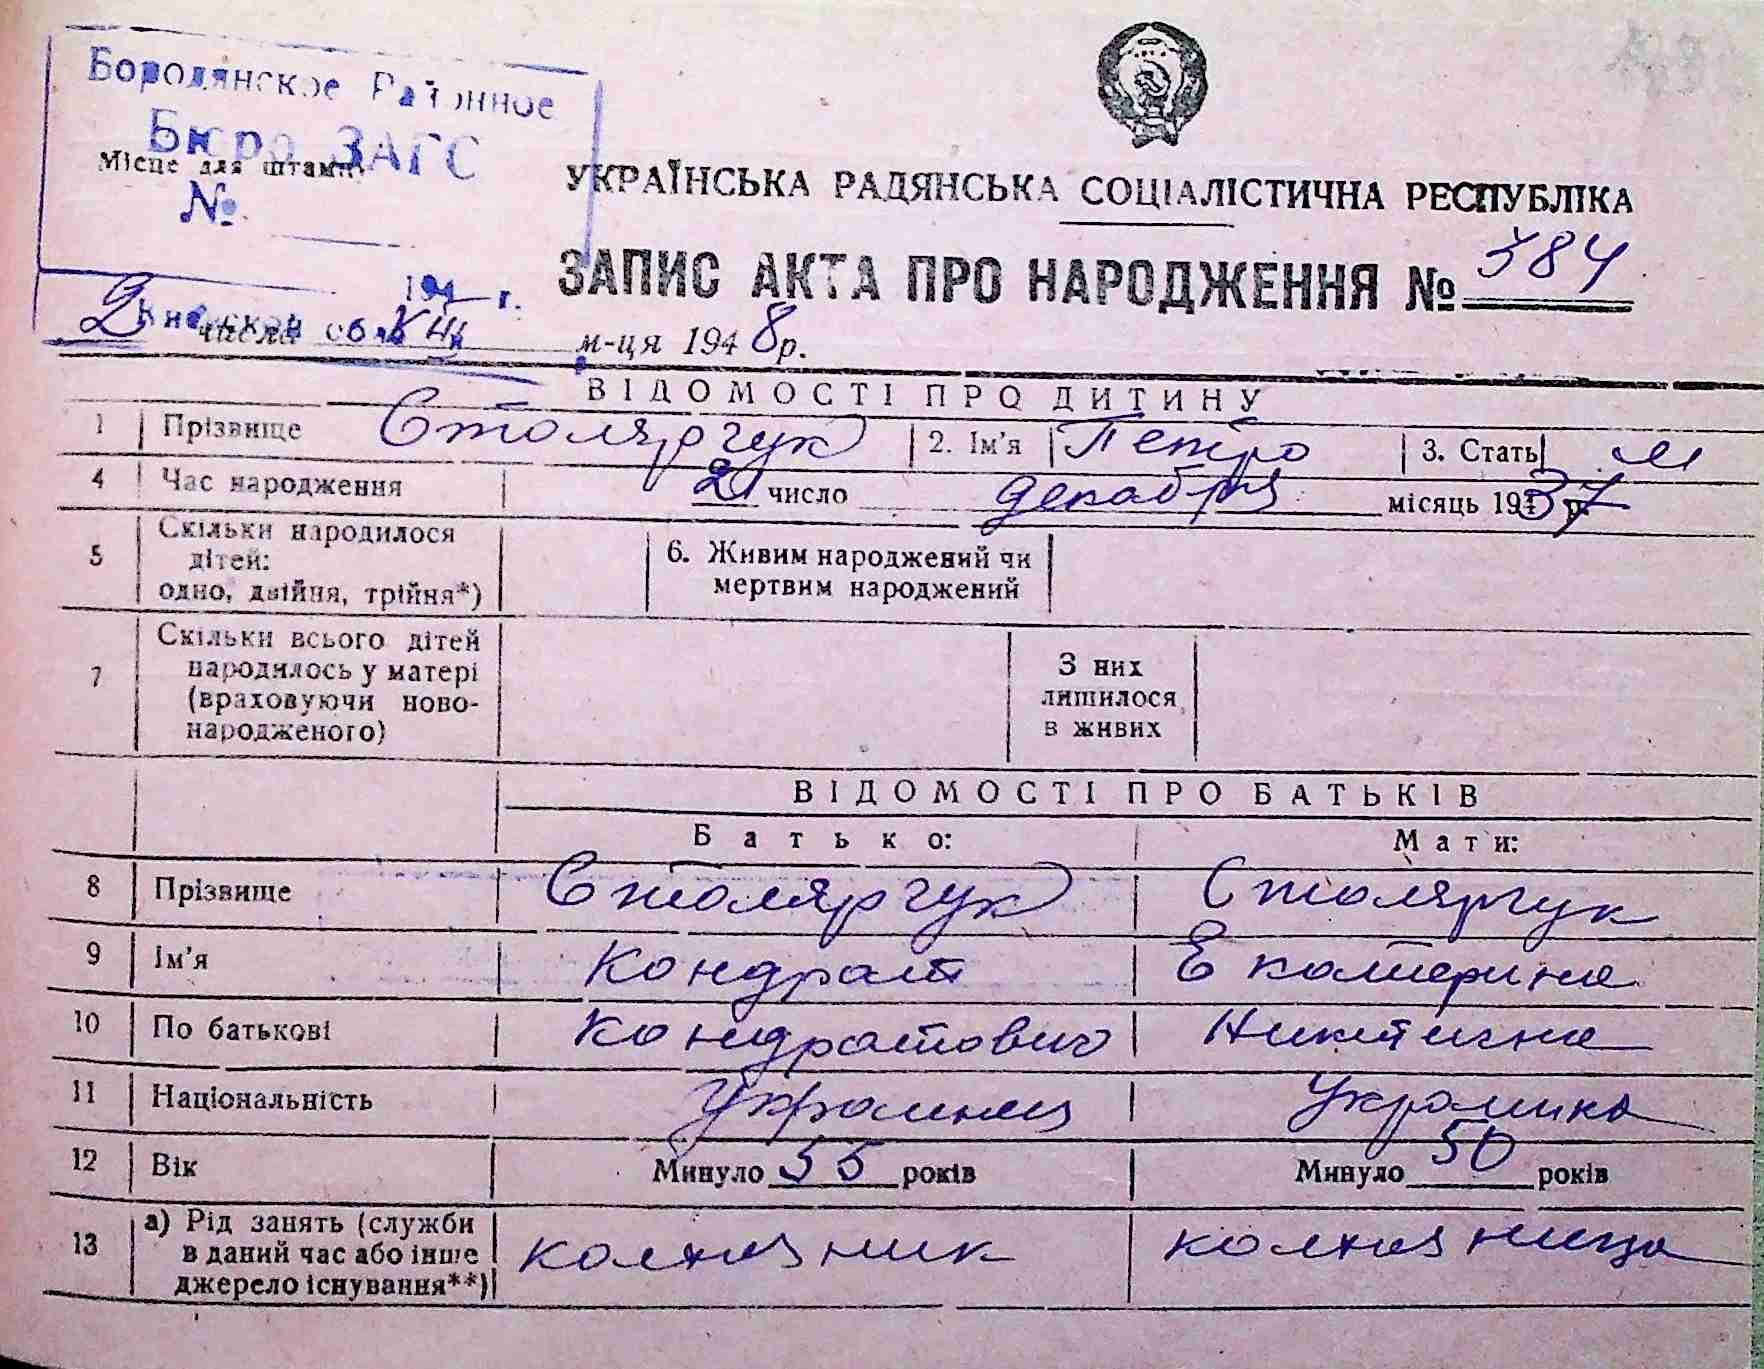 Бородянское Районное
Бюро ЗАГС
Місце для штампу
№
194 г.
Киевской обл
УКРАЇНСЬКА РАДЯНСЬКА СОЦІАЛІСТИЧНА РЕСПУБЛІКА
ЗАПИС АКТА ПРО НАРОДЖЕННЯ № 384
2 числа м-ця 1948 р.
ВІДОМОСТІ ПРО ДИТИНУ
1 Прізвище Столярчук 2. Ім'я Петро 3. Стать М
4 Час народження 21 число декабря місяць 1937 р.
5 Скільки народилося
дітей:
одно, двійня, трійня*)
6. Живим народжений чи
мертвим народжений
7 Скільки всього дітей
народилось у матері
(враховуючи ново-
народженого)
З них
лишилося
в живих
ВІДОМОСТІ ПРО БАТЬКІВ
Батько: Мати:
8 Прізвище Столярчук Столярчук
9 Ім'я Кондрат Екатерина
10 По батькові Кондратович Никитична
11 Національність Украинец Украинка
12 Вік Минуло 55 років Минуло 50 років
13 а) Рід занять (служби
в даний час або інше
джерело існування**)
колхозник колхозница